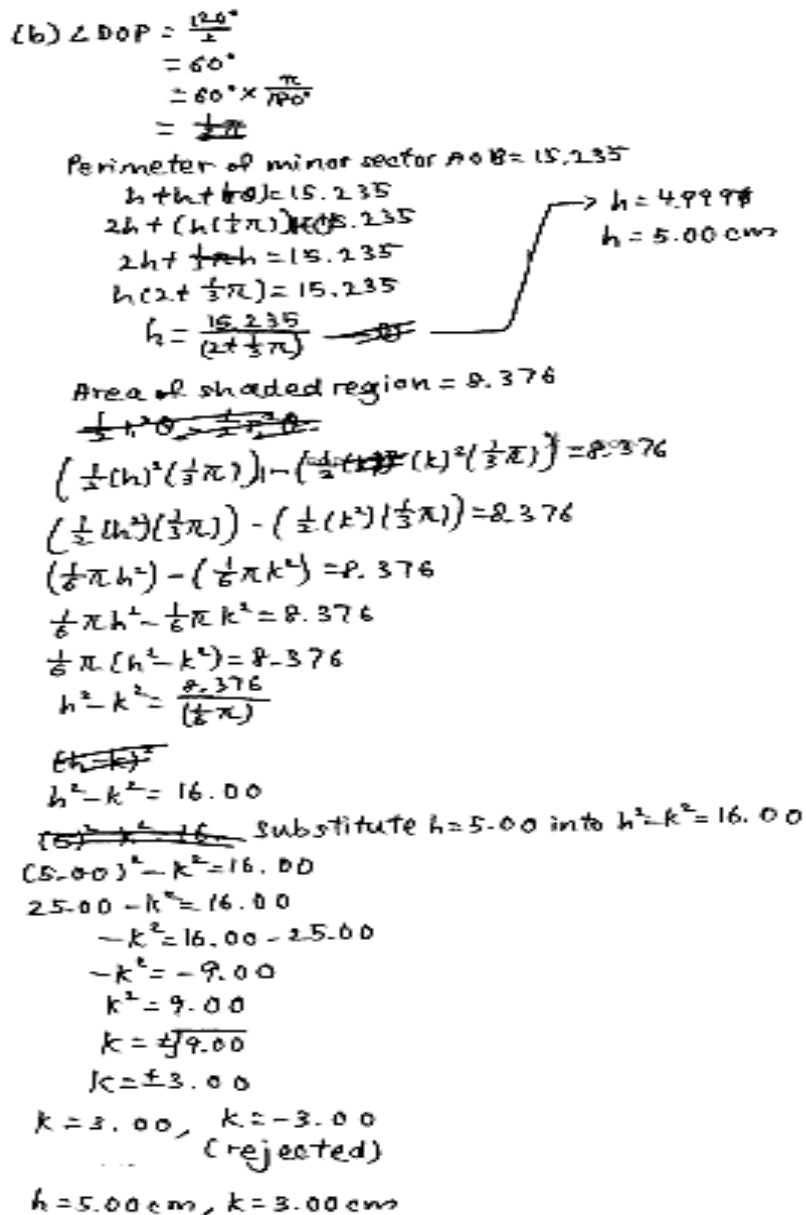 (b) ∠DOP = 120°/2
= 60°
= 60° × π/180°
= 1/3 π
Perimeter of minor sector AOB = 15.235
h + h + = 15.235
2h + (h(1/3 π)) = 15.235
2h + 1/3 πh = 15.235
h(2 + 1/3 π) = 15.235
h = 15.235/(2 + 1/3 π)
h = 4.999
h = 5.00 cm
Area of shaded region = 8.376
(1/2 (h)²(1/3 π)) - (1/2 (k)²(1/3 π)) = 8.376
(1/2 (h²)(1/3 π)) - (1/2 (k²)(1/3 π)) = 8.376
(1/6 πh²) - (1/6 πk²) = 8.376
1/6 πh² - 1/6 πk² = 8.376
1/6 π(h² - k²) = 8.376
h² - k² = 8.376/(1/6 π)
(h - k)²
h² - k² = 16.00
(5)² - k² = 16 substitute h = 5.00 into h² - k² = 16.00
(5.00)² - k² = 16.00
25.00 - k² = 16.00
-k² = 16.00 - 25.00
-k² = -9.00
k² = 9.00
k = ±√9.00
k = ±3.00
k = 3.00, k = -3.00
(rejected)
h = 5.00 cm, k = 3.00 cm